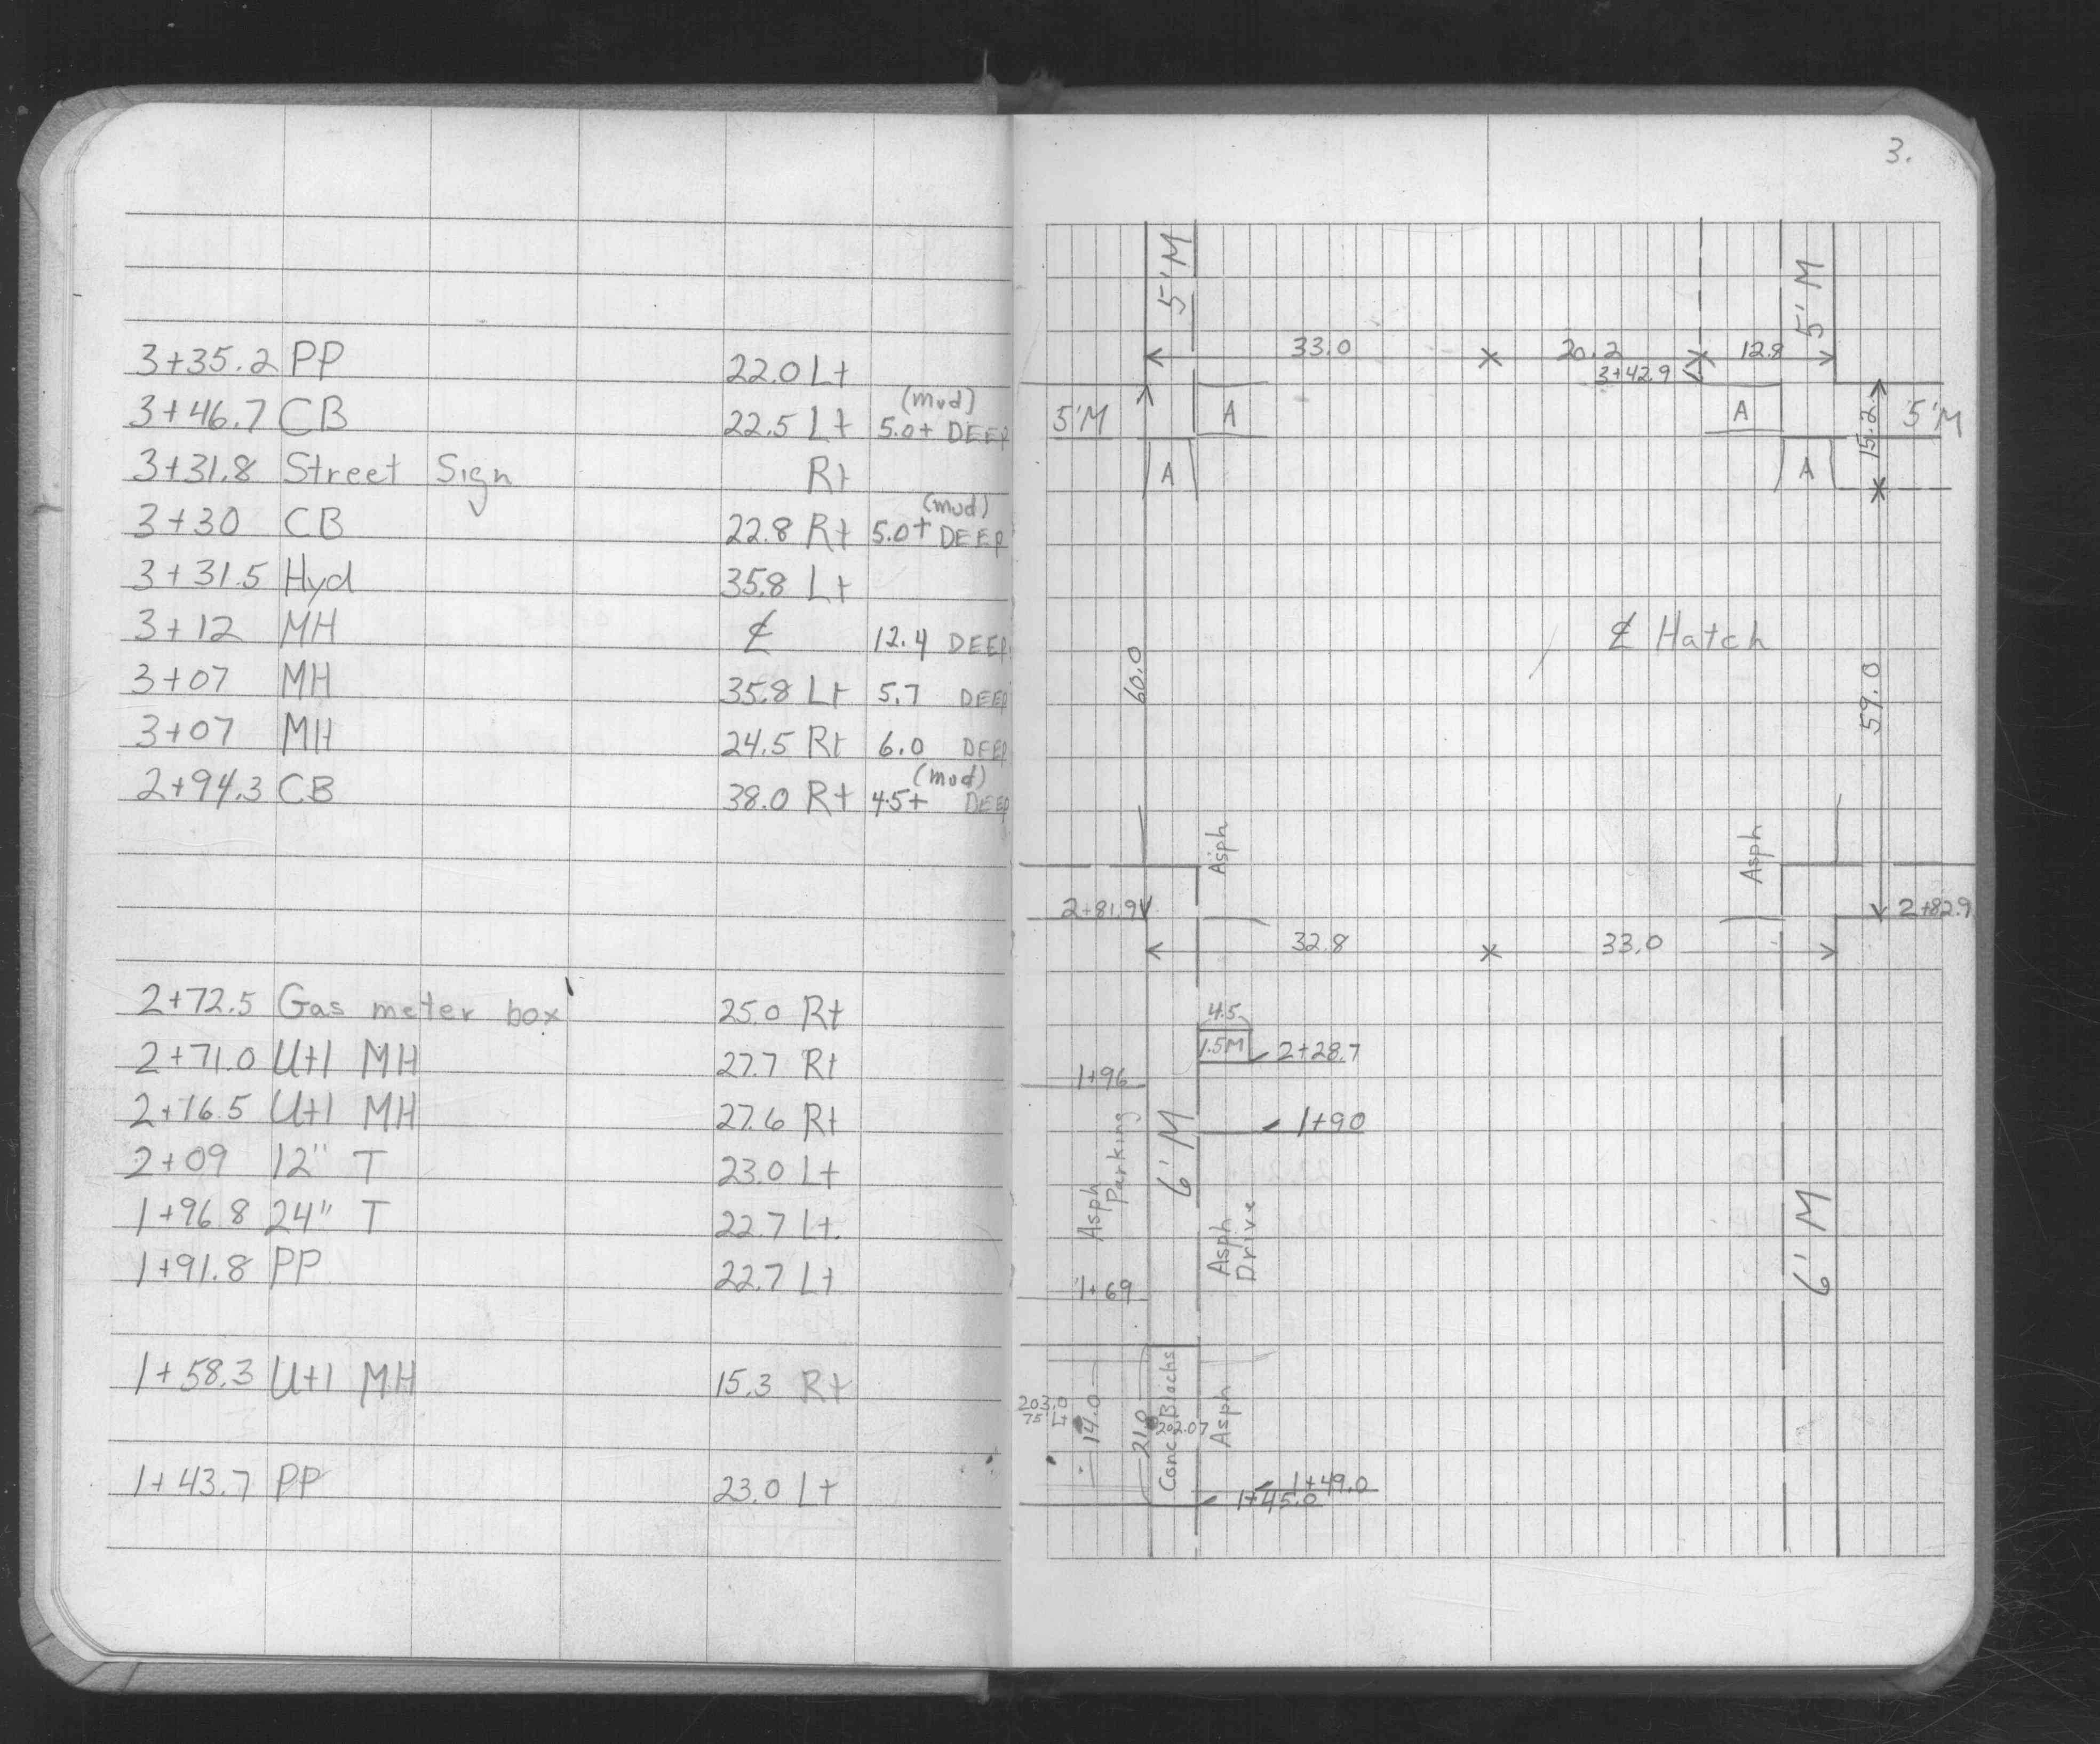 3+35.2 PP 22.0 Lt
(mud)
3+46.7 CB 22.5 Lt 5.0+ DEEP
3+31.8 Street Sign Rt
(mud)
3+30 CB 22.8 Rt 5.0+ DEEP
3+31.5 Hyd 35.8 Lt
3+12 MH ℄ 12.4 DEEP
3+07 MH 35.8 Lt 5.7 DEEP
3+07 MH 24.5 Rt 6.0 DEEP
(mud)
2+94.3 CB 38.0 Rt 4.5+ DEEP
2+72.5 Gas meter box 25.0 Rt
2+71.0 Utl MH 27.7 Rt
2+16.5 Utl MH 27.6 Rt
2+09 12" T 23.0 Lt
1+96.8 24" T 22.7 Lt.
1+91.8 PP 22.7 Lt
1+58.3 Utl MH 15.3 Rt
1+43.7 PP 23.0 Lt
3.
5'M 5'M
33.0 20.2 12.8
3+42.9
5'M A A 15.2 5'M
A A
℄ Hatch
60.0 59.0
Asph Asph
2+81.9 2+82.9
32.8 33.0
4.5
1.5M 2+28.7
1+96
1+90
Asph Parking 6'M Asph Drive 6'M
1+69
203.0
75 Lt 14.0 21.0 Conc Blocks Asph
202.07
1+49.0
1+45.0